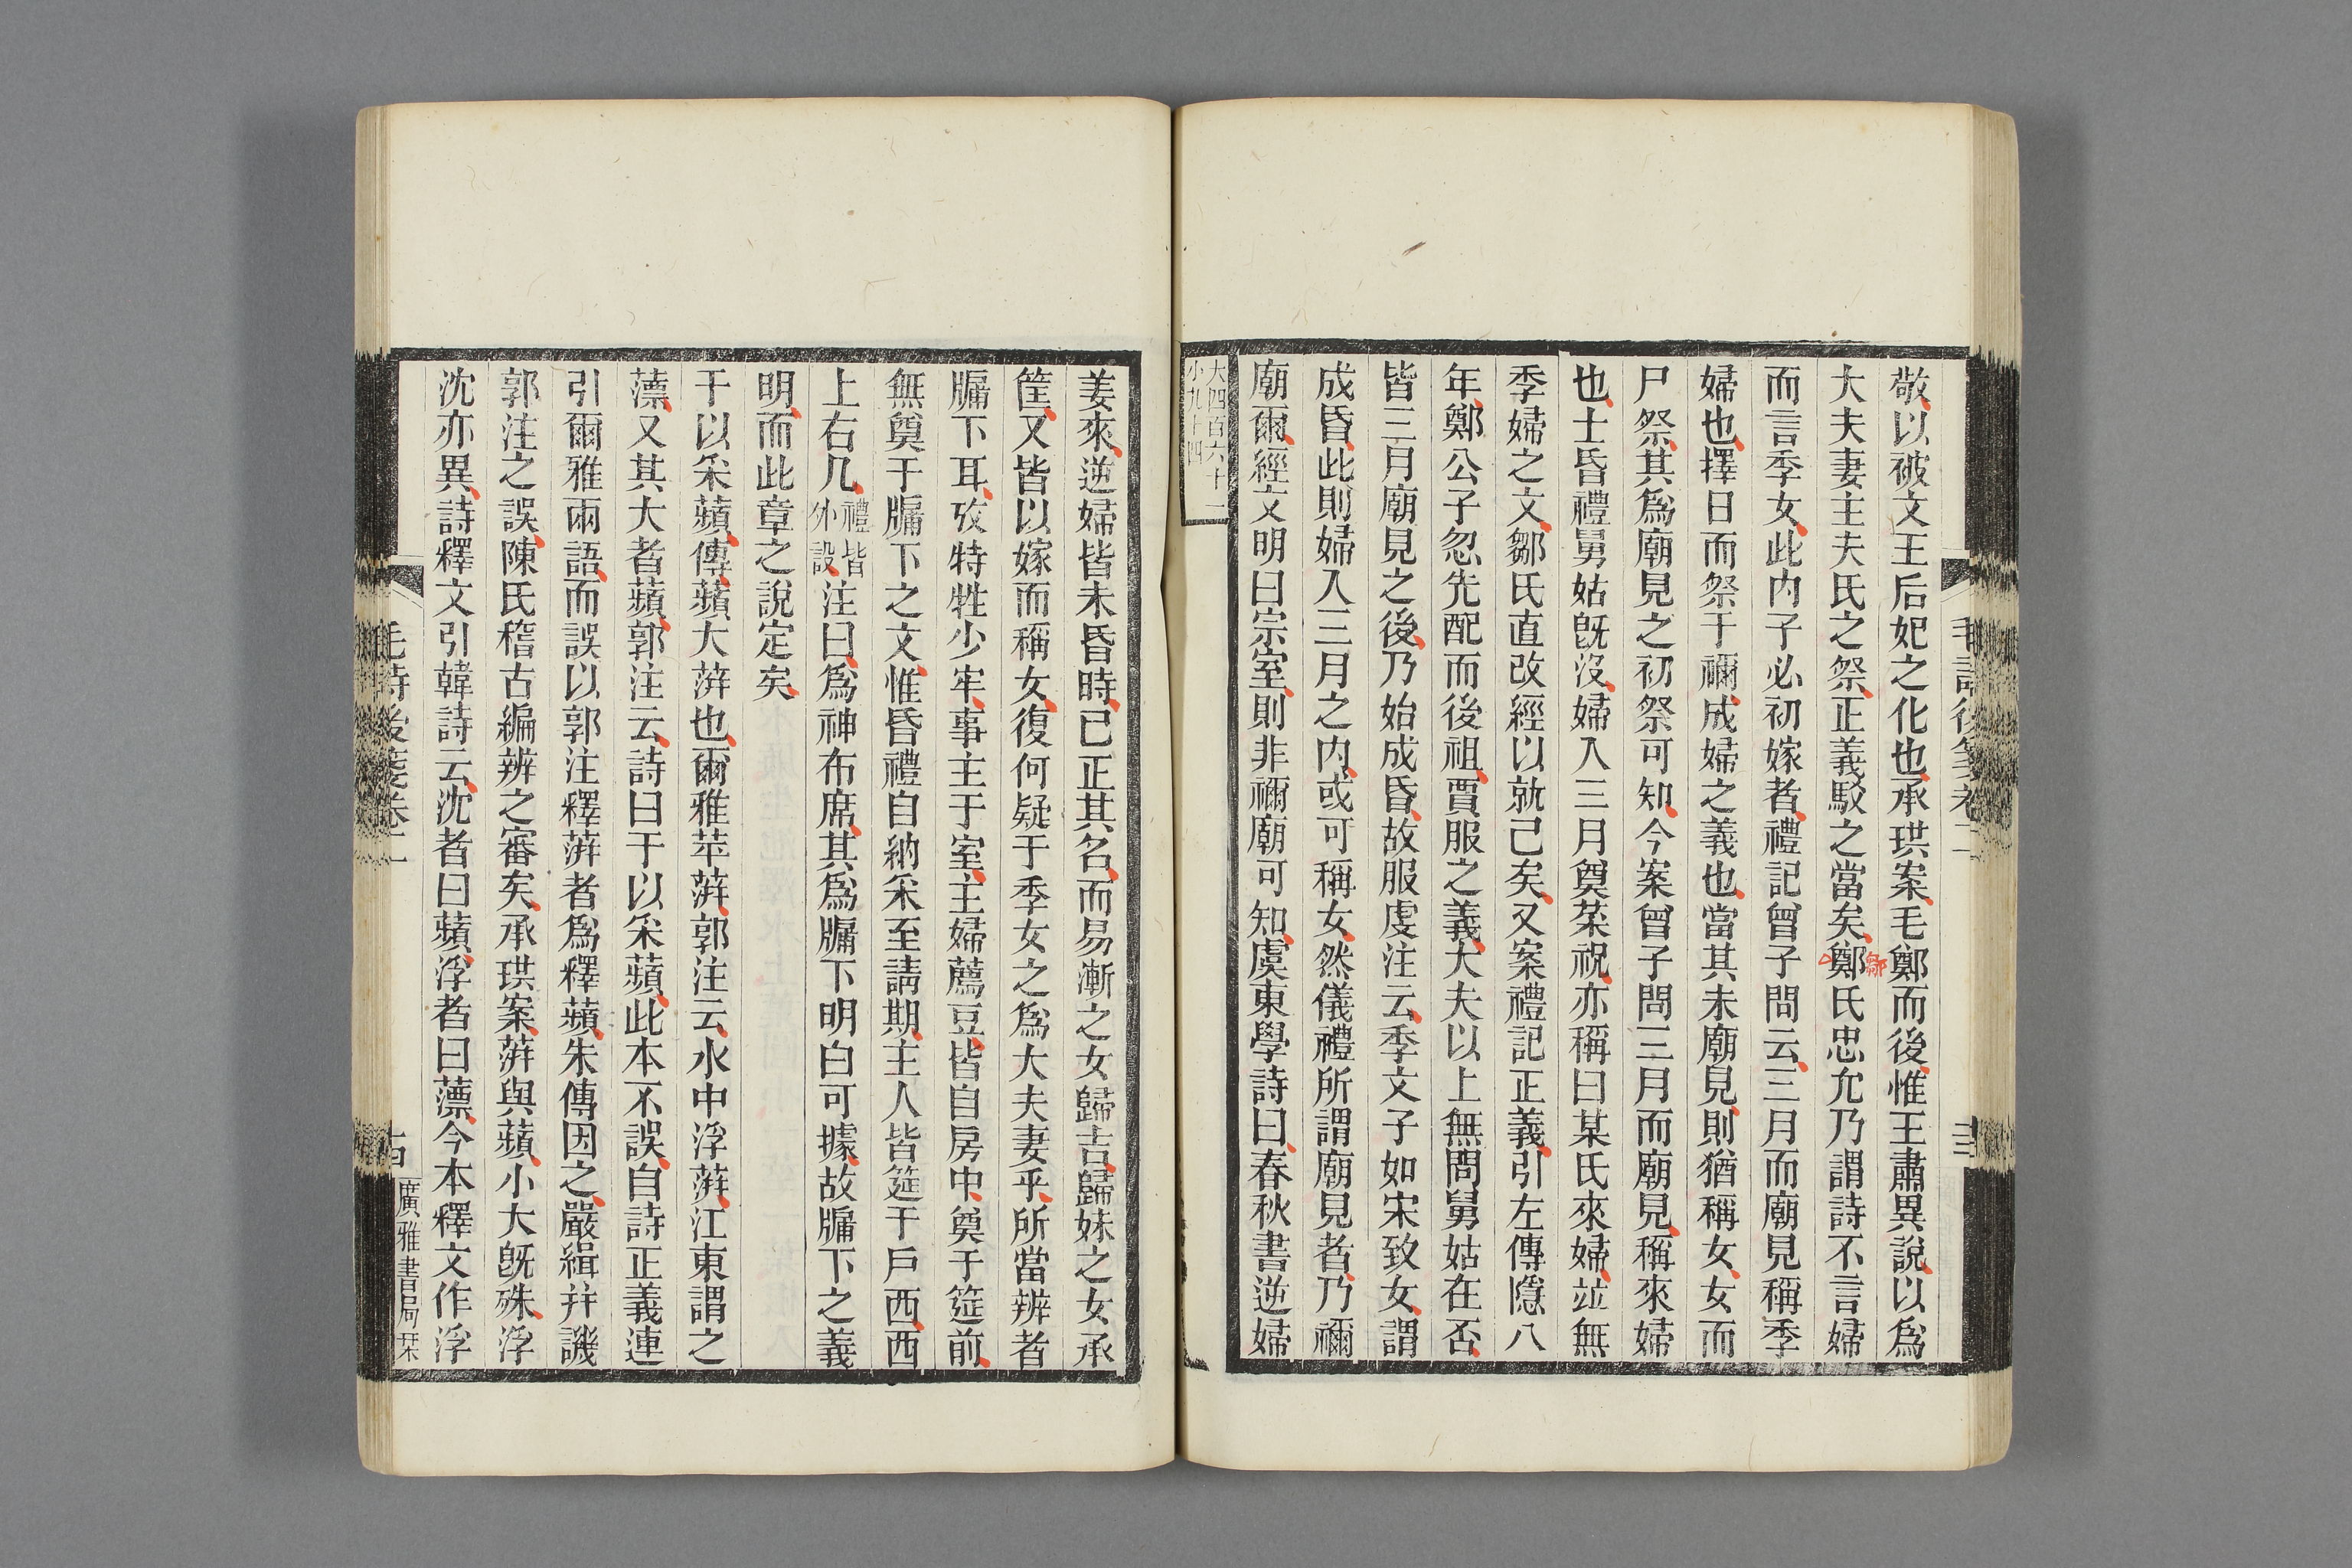 敬以被文王后妃之化也承珙案毛鄭而後惟王肅異說以爲
大夫妻主夫氏之祭正義駁之當矣鄭氏忠允乃謂詩不言婦
鄒
而言季女此內子必初嫁者禮記曾子問云三月而廟見稱季
婦也擇日而祭于禰成婦之義也當其未廟見則猶稱女女而
尸祭其爲廟見之初祭可知今案曾子問三月而廟見稱來婦
也士昏禮舅姑旣沒婦入三月奠菜祝亦稱曰某氏來婦竝無
季婦之文鄒氏直改經以就己矣又案禮記正義引左傳隱八
年鄭公子忽先配而後祖賈服之義大夫以上無問舅姑在否
皆三月廟見之後乃始成昏故服虔注云季文子如宋致女謂
成昏此則婦入三月之內或可稱女然儀禮所謂廟見者乃禰
廟爾經文明曰宗室則非禰廟可知虞東學詩曰春秋書逆婦
大四百六十一
小九十四
姜來逆婦皆未昏時已正其名而易漸之女歸吉歸妹之女承
筐又皆以嫁而稱女復何疑于季女之爲大夫妻乎所當辨者
牖下耳攷特牲少牢事主于室主婦薦豆皆自房中奠于筵前
無奠于牖下之文惟昏禮自納采至請期主人皆筵于戶西西
上右几禮皆外設注曰爲神布席其爲牖下明白可據故牖下之義
明而此章之說定矣
于以采蘋傳蘋大蓱也爾雅苹蓱郭注云水中浮蓱江東謂之
薸又其大者蘋郭注云詩曰于以采蘋此本不誤自詩正義連
引爾雅兩語而誤以郭注釋蓱者爲釋蘋朱傳因之嚴緝幷譏
郭注之誤陳氏稽古編辨之審矣承珙案蓱與蘋小大旣殊浮
沈亦異詩釋文引韓詩云沈者曰蘋浮者曰薸今本釋文作浮
毛詩後箋卷二
十四
廣雅書局栞